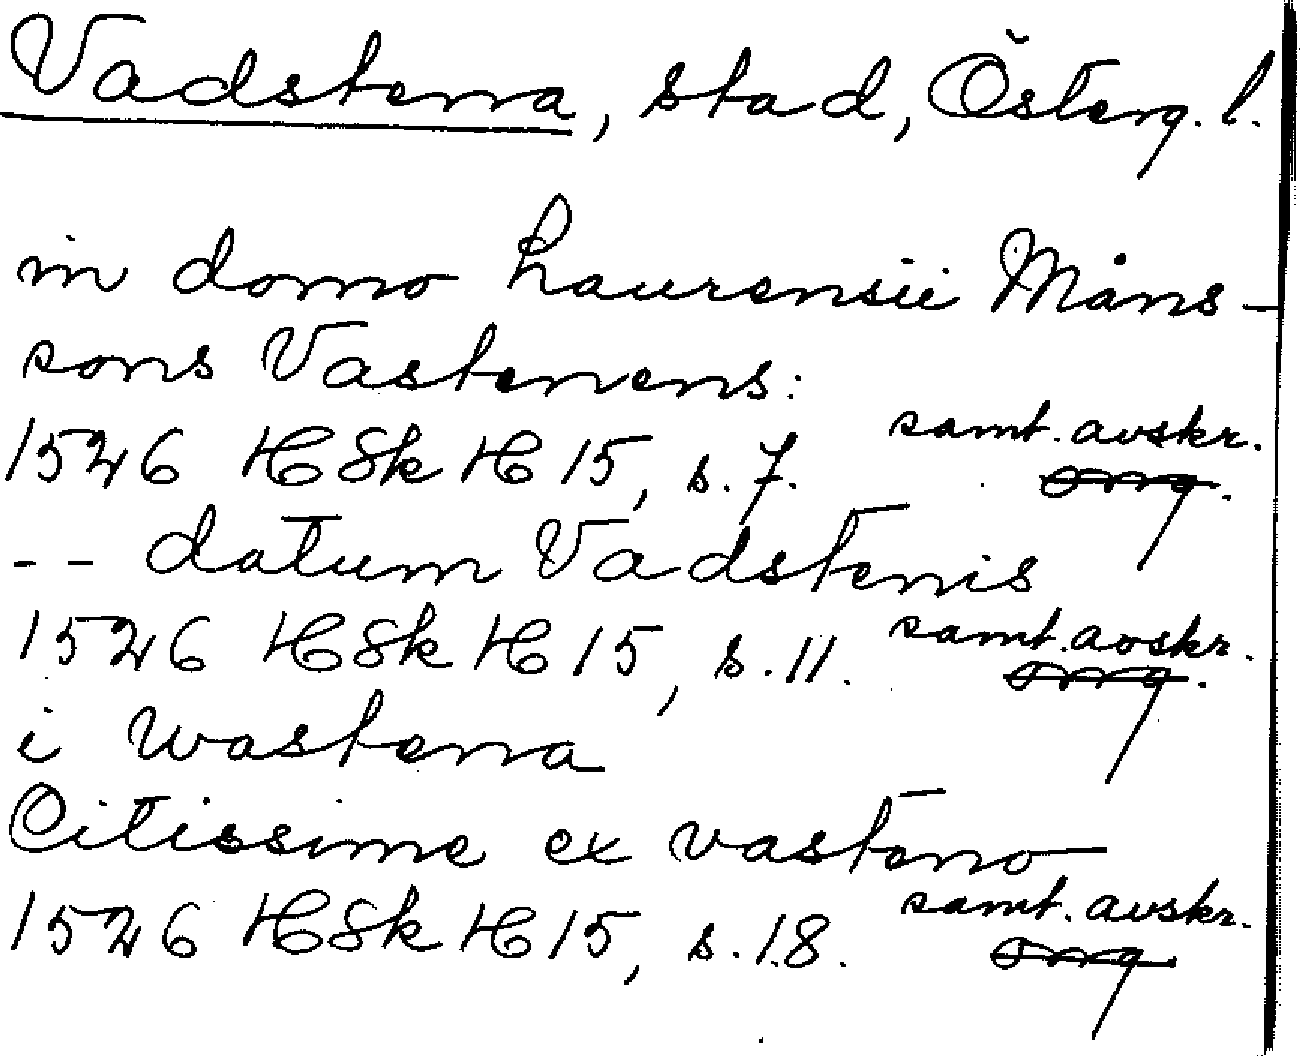 Vadstena, stad, Österg. l.
in domo Laurensii Måns-
sons Vastenens:
1526 HSk H 15, s. 7. samt. avskr.
org.
-- datum Vadstenis
1526 HSk H 15, s. 11. samt. avskr.
org.
i wastena
Citissime ex vasteno
1526 HSk H 15, s. 18. samt. avskr.
org.